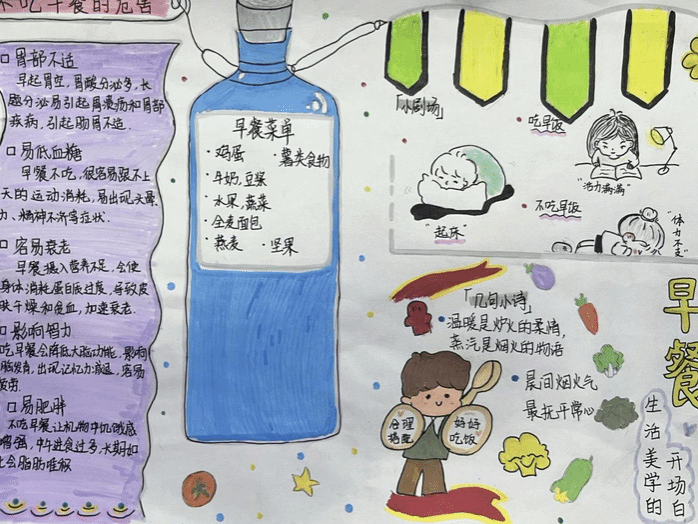 不吃早餐的危害
胃部不适
早起胃空,胃酸分泌多,长
易引起胃溃疡和胃部
疾病,引起肠胃不适.
易低血糖
早餐不吃,很容易跟不上
天的运动消耗,易出现头晕
力、精神不济等症状.
容易衰老
早餐摄入营养不足,会使
身体消耗蛋白质过度,导致皮
肤干燥和贫血,加速衰老.
影响智力
吃早餐会降低大脑功能,影响
脑发育,出现记忆力减退,容易
易肥胖
不吃早餐让机体中饥饿感
增强,中午进食过多,长期如
此会脂肪堆积
早餐菜单
·鸡蛋
·薯类食物
·牛奶,豆浆
·水果,蔬菜
·全麦面包
·燕麦
·坚果
「小剧场」
“起床”
吃早饭
“活力满满”
不吃早饭
“体力不支”
「几句小诗」
温暖是炉火的柔情,
蒸汽是烟火的物语
晨间烟火气
最抚平常心
合理
搭配
好好
吃饭
早餐
生活美学的
开场白